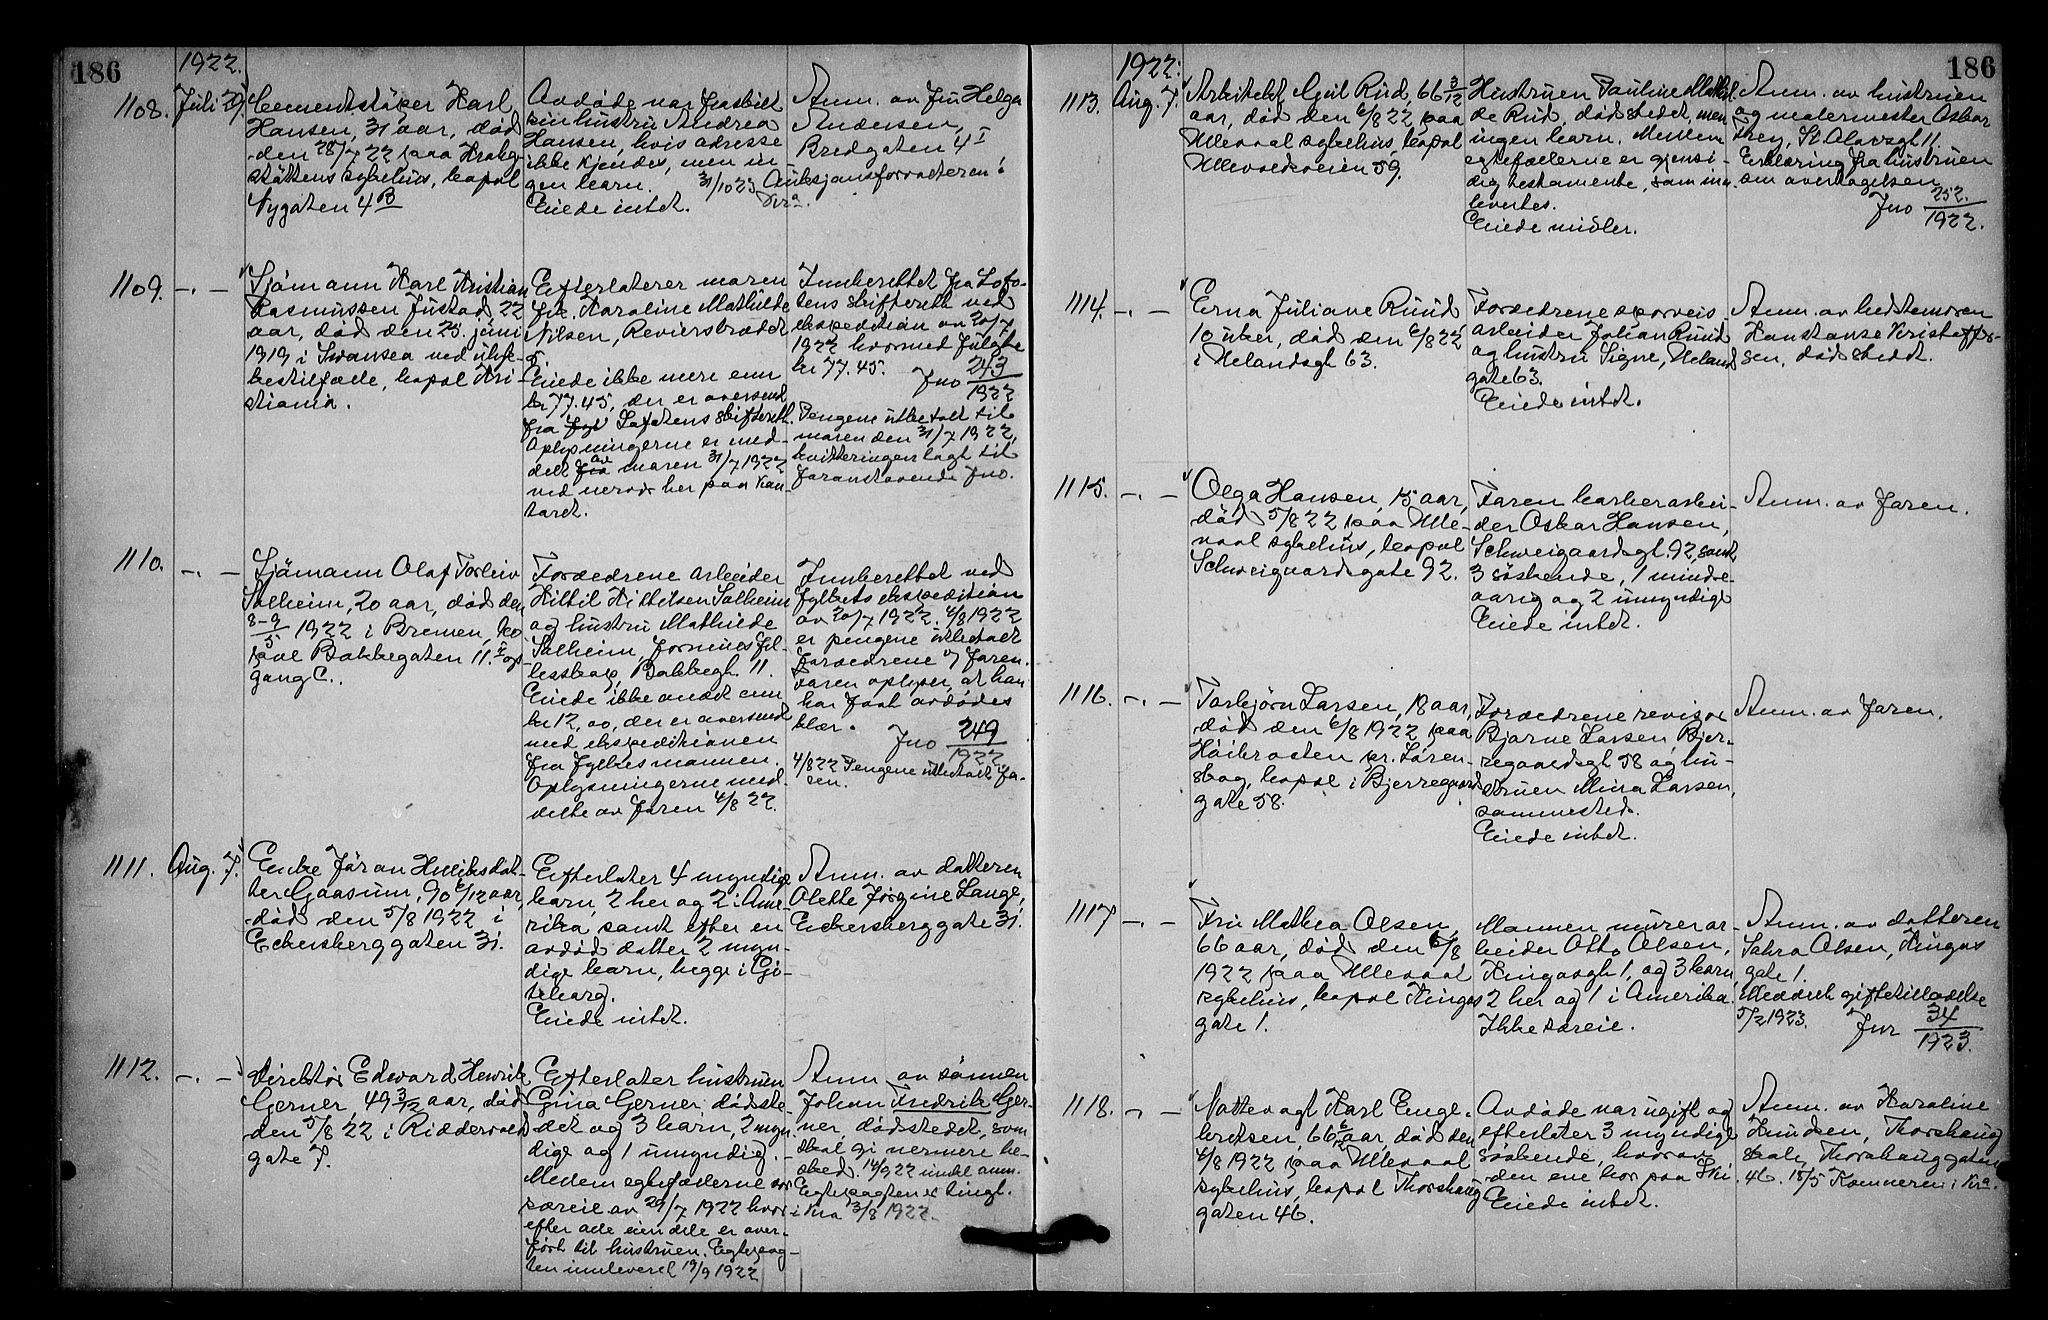 186
1922.
1108.
Juli 29.
Cementstøper Karl
Hansen, 31 aar, död
den 28/7 22 paa Krohg-
støttens sykehus, bopæl
Nygaten 4B
Avdøde var fraskilt
sin hustru Andrea
Hansen, hvis adresse
ikke kjendes, men in
gen barn.
Eiede intet.
Anm. av Fru Helga
Andersen,
Bredgaten 4 I
31/10 23 Auksjonsforvalteren i
Kra.
1109.
-.-
Sjömann Karl Kristian
Rasmussen Justad, 22
aar, död den 25. juni
1919 i Swansea ved ulyk-
kestilfælde, bopæl Kri-
stiania.
Efterlater moren
frk. Karoline Mathilde
Nilsen, Revierstrædet
5.
Eiede ikke mere enn
kr 77.45, der er oversendt
fra Lofotens skifterett.
Oplysningerne er med-
delt av moren 31/7 1922
ved nervær her paa kon-
toret.
Innberettet fra Lofo-
tens skifterett ved
ekspedition av 20/7
1922 hvormed fulgte
kr 77.45.
Jno 243/1922
Pengene utbetalt til
moren den 31/7 1922,
kvitteringen lagt til
foranstaaende Jno.
1110.
-.-
Sjömann Olaf Torleiv
Solheim, 20 aar, död den
8-9/5 1922 i Bremen, bo
pæl Bakkegaten 11. I op
gang C.
Forældrene arbeider
Kittil Kittilsen Solheim
og hustru Mathilde
Solheim, formuesfel-
lesskap, Bakkegt. 11.
Eiede ikke andet enn
kr 12,00, der er oversendt
med ekspeditionen
fra fylkesmannen.
Oplysningerne med
delte av faren 4/8 22.
Innberettet ved
fylkets ekspedition
av 20/7 1922. 4/8 1922
er pengene utbetalt
forældrene v/ faren.
Faren oplyser, at han
har faat avdødes
klær.
Jno 249/1922
4/8 22 Pengene utbetalt fa-
ren.
1111.
Aug. 7.
Enke Jöran Hulliksdat-
ter Gaasum, 90 6/12 aar,
död den 5/8 1922 i
Eckersberggaten 31.
Efterlater 4 myndige
barn, 2 her og 2 i Ame-
rika samt efter en
avdød datter 2 myn-
dige barn, begge i Gö-
teborg.
Eiede intet.
Anm. av datteren
Olette Jørgine Lange,
Eckersberggate 31.
1112.
-.-
Direktör Edward Henrik
Gerner, 49 3/12 aar, död
den 5/8 22 i Riddervolds
gate 7.
Efterlater hustruen
Gina Gerner, dødste-
det og 3 barn, 2 myn
dige og 1 umyndig.
Mellem egtefællerne var
særeie av 29/7 1922 hvor
efter alle eiendele er over-
ført til hustruen. Egtepag-
ten innlevert 19/9 1922
Anm. av sönnen
Johan Fredrik Ger-
ner, dødstedet, som
skal gi nermere be-
sked. 14/9 22 innl. anm.
Egtepagten er tingl.
i Kra 3/8 1922.
186
1922.
1113.
Aug. 7.
Arkitekt Emil Rud, 66 3/12
aar, död den 6/8 22 paa
Ullevaal sykehus, bopæl
Ullevoldsveien 59.
Hustruen Pauline Mathil
de Rud, dødstedet, men
ingen barn. Mellem
egtefællerne er gjensi-
dig testamente, som inn
levertes.
Eiede midler.
Anm. av hustruen
og malermester Oskar
Frey, St. Olavsgt 11.
Erklæring fra hustruen
om overtagelsen
Jno 252/1922.
1114.
-.-
Erna Juliane Ruud
10 uker, död den 6/8 22
i Uelandsgt 63.
Forældrene sporveis
arbeider Johan Ruud
og hustru Signe, Ueland
gate 63.
Eiede intet.
Anm. av bedstemoren
Konstanse Kristoffer-
sen, dødstedet.
1115.
-.-
Olga Hansen, 15 aar,
död 5/8 22 paa Ulle-
vaal sykehus, bopæl
Schweigaardsgate 92.
Faren korkarbei-
der Oskar Hansen,
Schweigaardsgt. 92, samt
3 søskende, 1 mindre-
aarig og 2 umyndige
Eiede intet.
Anm. av faren.
1116.
-.-
Torbjørn Larsen, 18 aar,
død den 6/8 1922 paa
Höibraaten pr. Lören-
skog, bopæl i Bjerregaards
gate 58.
Forældrene revisor
Bjarne Larsen, Bjer-
regaardsgt 58 og hu-
struen Mina Larsen,
sammesteds.
Eiede intet.
Anm. av faren.
1117
-.-
Fru Mathea Olsen,
66 aar, död den 6/8
1922 paa Ullevaal
sykehus, bopæl Kingos
gate 1.
Mannen murerar-
beider Otto Olsen,
Kingosgt 1, og 3 barn
2 her og 1 i Amerika.
Ikke særeie.
Anm. av datteren
Sahra Olsen, Kingos
gate 1.
Meddelt giftetilladelse
5/2 1923. Jnr 34/1923.
1118.
-.-
Nattevagt Karl Enge-
bretsen, 66 6/12 aar, död den
4/8 1922 paa Ullevaal
sykehus, bopæl Thorshaug
gaten 46.
Avdøde var ugift og
efterlater 3 myndige
søskende, hvorav
den ene bor paa Ski
Eiede intet.
Anm. av Karoline
Knudsen, Thorshaug
skole, Thorshauggaten
46. 15/5 Kemneren i Kra.